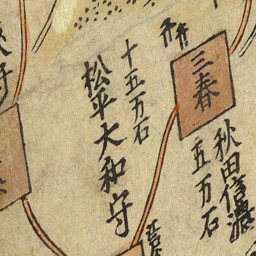 三春
秋田信濃
五万石
十五万石
松平大和守